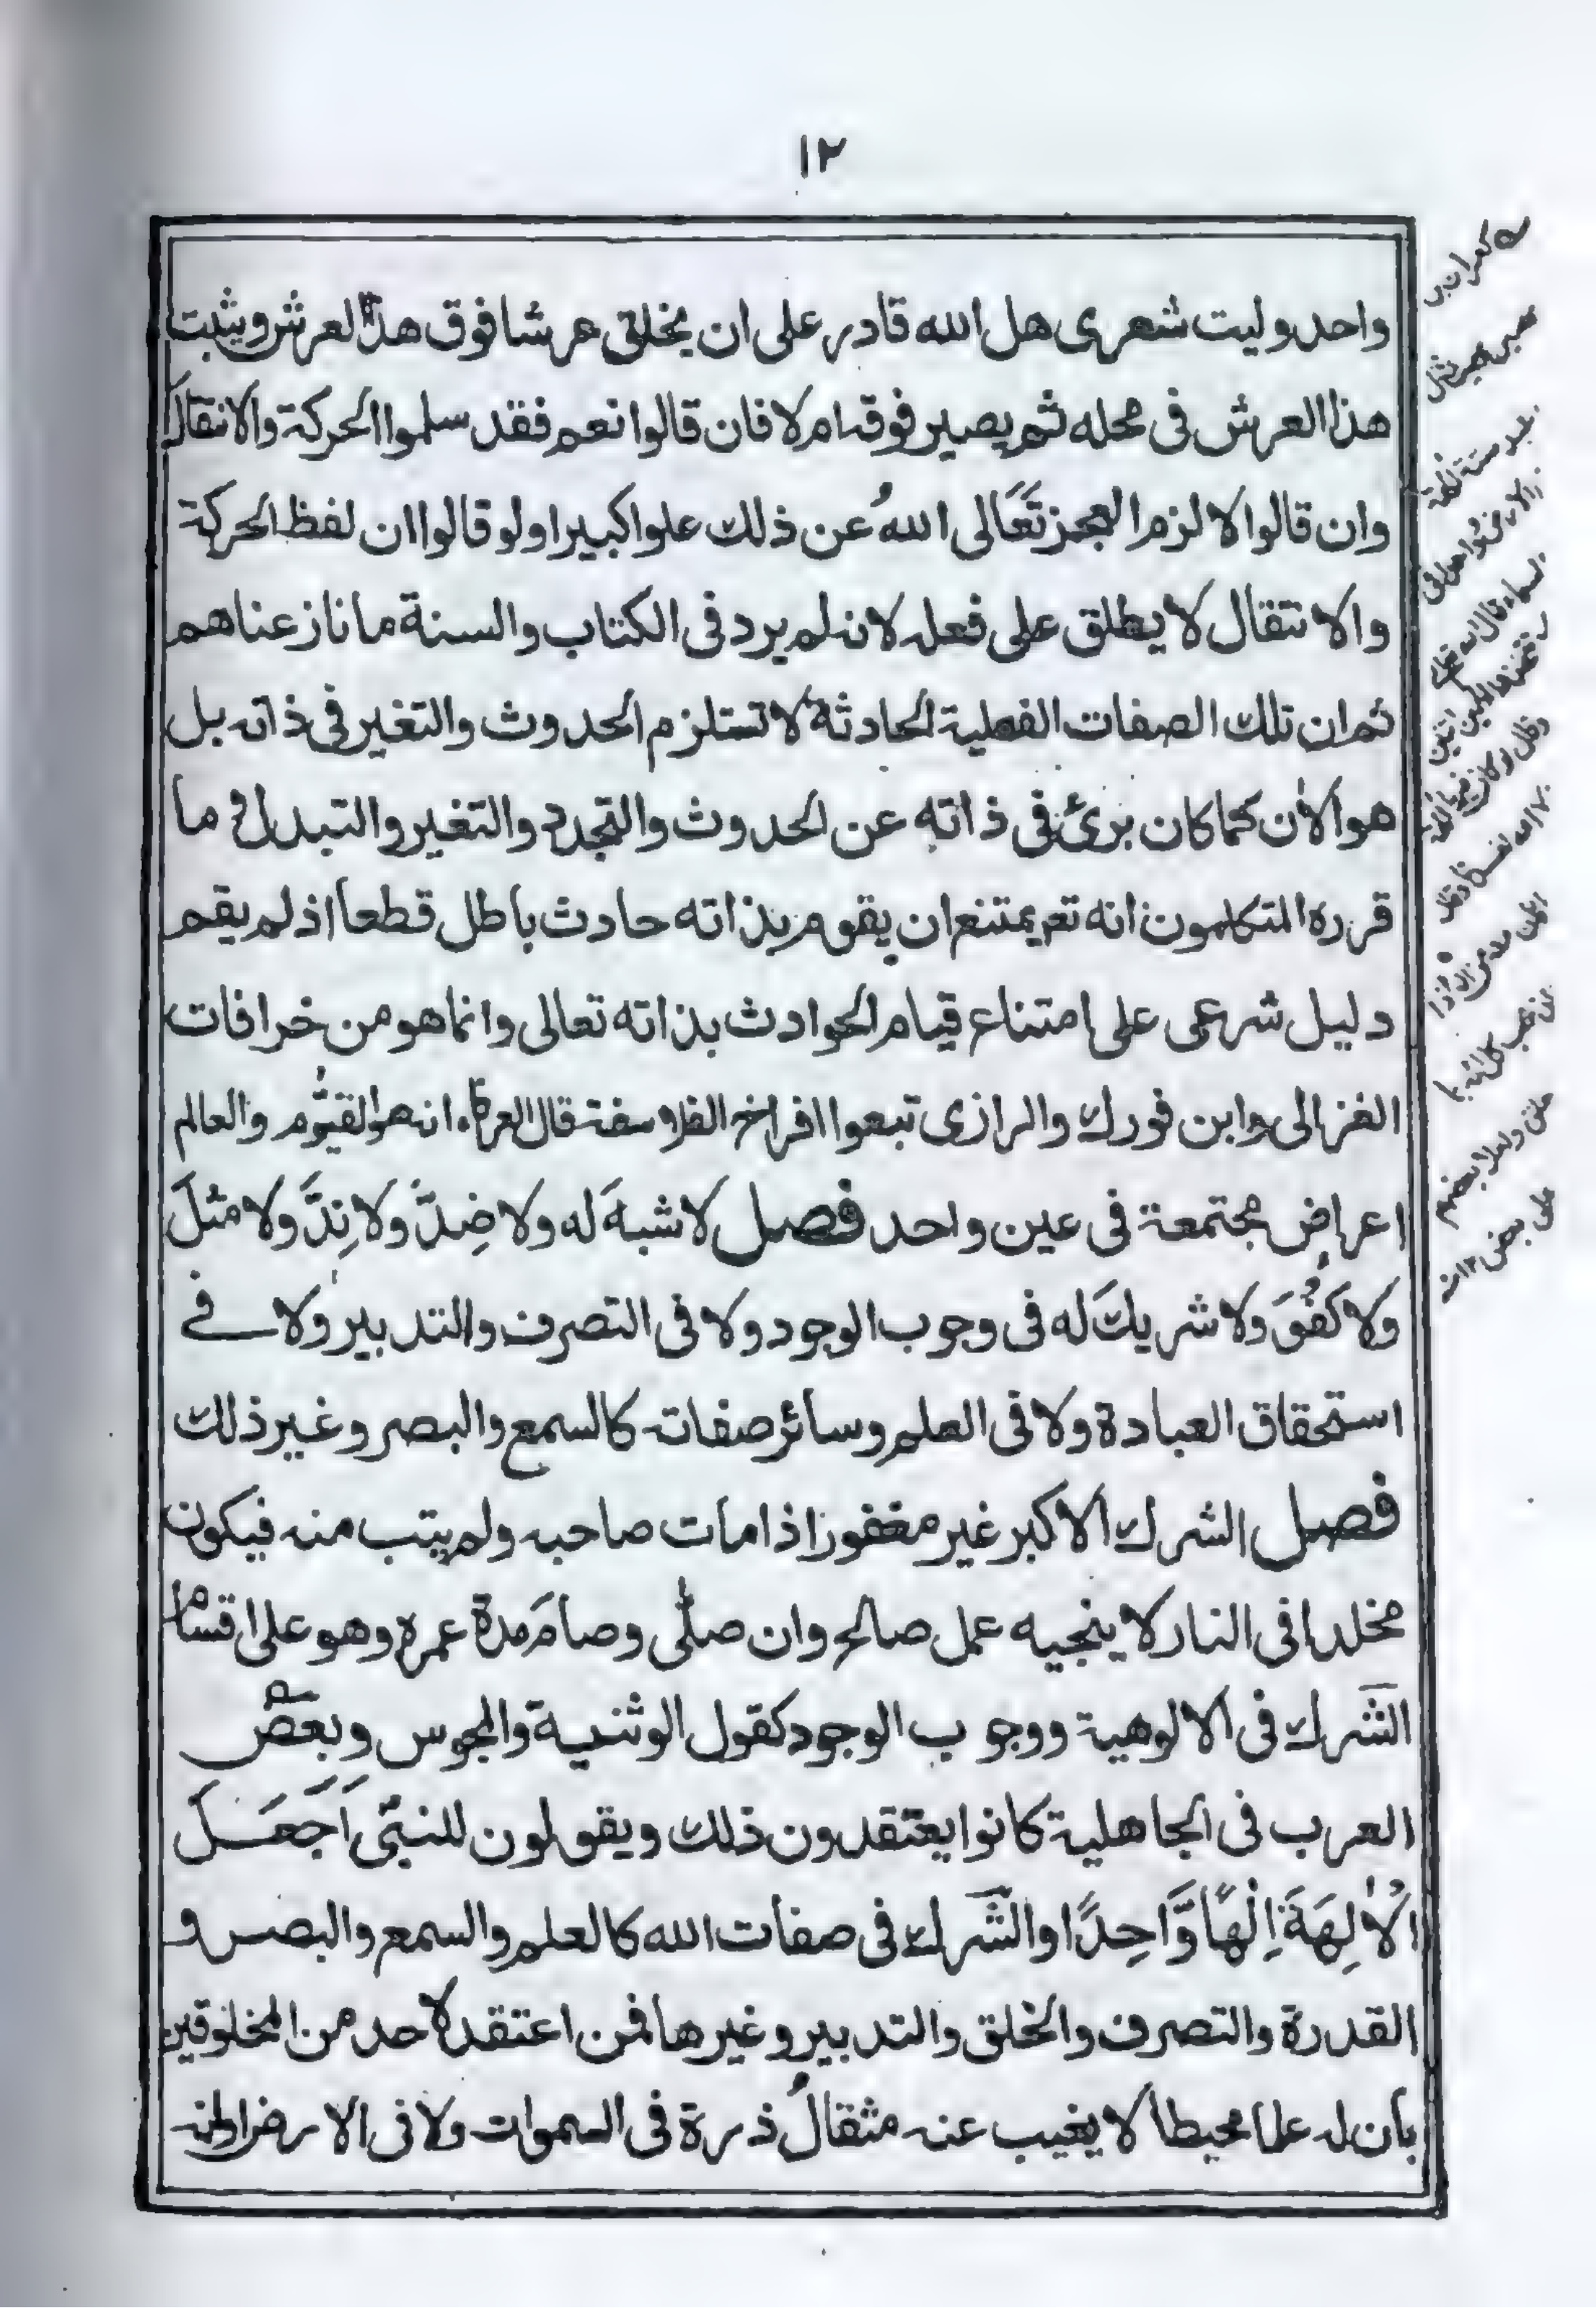 ١٢
واحد وليت شعرى هل الله قادر على ان يخلق عرشا فوق هذا العرش ويثبت
هذا العرش فى محله ثم يصير فوقه ام لا فان قالوا نعم فقد سلموا الحركة والانتقال
وان قالوا لا لزم العجز تَعَالى اللهُ عن ذلك علوا كبيرا ولو قالوا ان لفظ الحركة
والانتقال لا يطلق على فعله لانه لم يرد فى الكتاب والسنة ما نازعناهم
ثم ان تلك الصفات الفعلية الحادثة لا تستلزم الحدوث والتغير فى ذاته بل
هو الاٰن كما كان برئ فى ذاته عن الحدوث والتجدد والتغير والتبدل و ما
قرره المتكلمون انه تعه يمتنع ان يقوم بذاته حادث باطل قطعا اذ لم يقم
دليل شرعى على امتناع قيام الحوادث بذاته تعالى وانما هو من خرافات
الغزالى وابن فورك والرازى تبعوا افراخ الفلاسفة قال العرفاء انه هو القيُّوم والعالم
اعراض مجتمعة فى عين واحد فصل لا شبهَ له ولا ضِدَّ ولا نِدَّ ولا مثلَ
ولا كُفُؤَ ولا شريكَ له فى وجوب الوجود ولا فى التصرف والتدبير ولا فے
استحقاق العبادة ولا فى العلم وسائر صفاته كالسمع والبصر وغير ذلك
فصل الشرك الاكبر غير مغفور اذا مات صاحبه ولم يتب منه فيكون
مخلدا فى النار لا ينجيه عمل صالح وان صلّى وصامَ مدة عمره وهو على اقسام
الشرك فى الالوهية ووجوب الوجود كقول الوثنية والمجوس وبعض
العرب فى الجاهلية كانوا يعتقدون ذلك ويقولون للنبّى اَجَعَلَ
الْاٰلِهَةَ اِلٰهًا وَّاحِدًا والشَّرك فى صفات الله كالعلم والسمع والبصر و
القدرة والتصرف والخلق والتدبير وغيرها فمن اعتقد لاحد من المخلوقين
بان له علما محيطا لا يغيب عنه مثقالُ ذرة فى السموات ولا فى الارض او انه